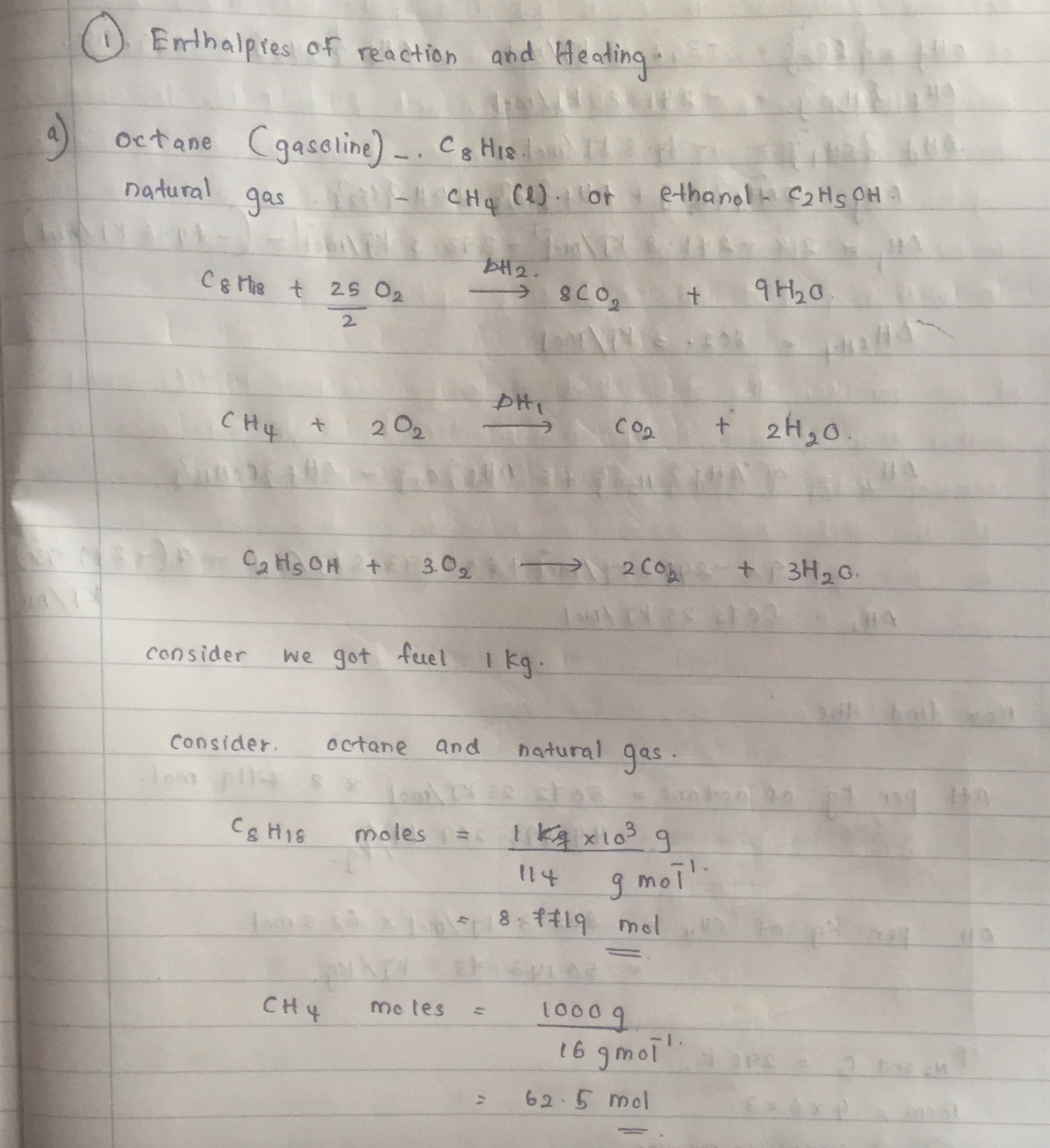 ① Enthalpies of reaction and Heating.
a) octane (gasoline) -. C8H18.
natural gas - CH4 (l). or ethanol - C2H5OH.
C8H18 + 25/2 O2 →(ΔH2.) 8CO2 + 9H2O.
CH4 + 2O2 →(ΔH1) CO2 + 2H2O.
C2H5OH + 3.O2 → 2CO2 + 3H2O.
consider we got fuel 1 kg.
consider. octane and natural gas.
C8H18 moles = 1 kg ×10³ g
114 g mol⁻¹.
= 8.7719 mol
CH4 moles = 1000 g
16 gmol⁻¹.
= 62.5 mol